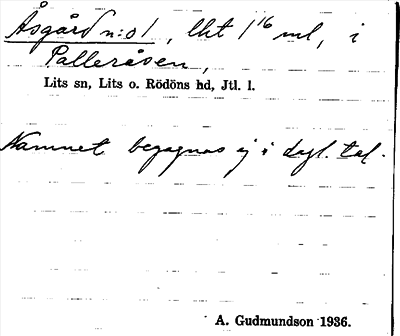 Åsgård n:o 1, lht 1/16 mtl, i
Palleråsen,
Lits sn, Lits o. Rödöns hd, Jtl. l.
Namnet begagnas ej i dagl. tal.
A. Gudmundson 1936.